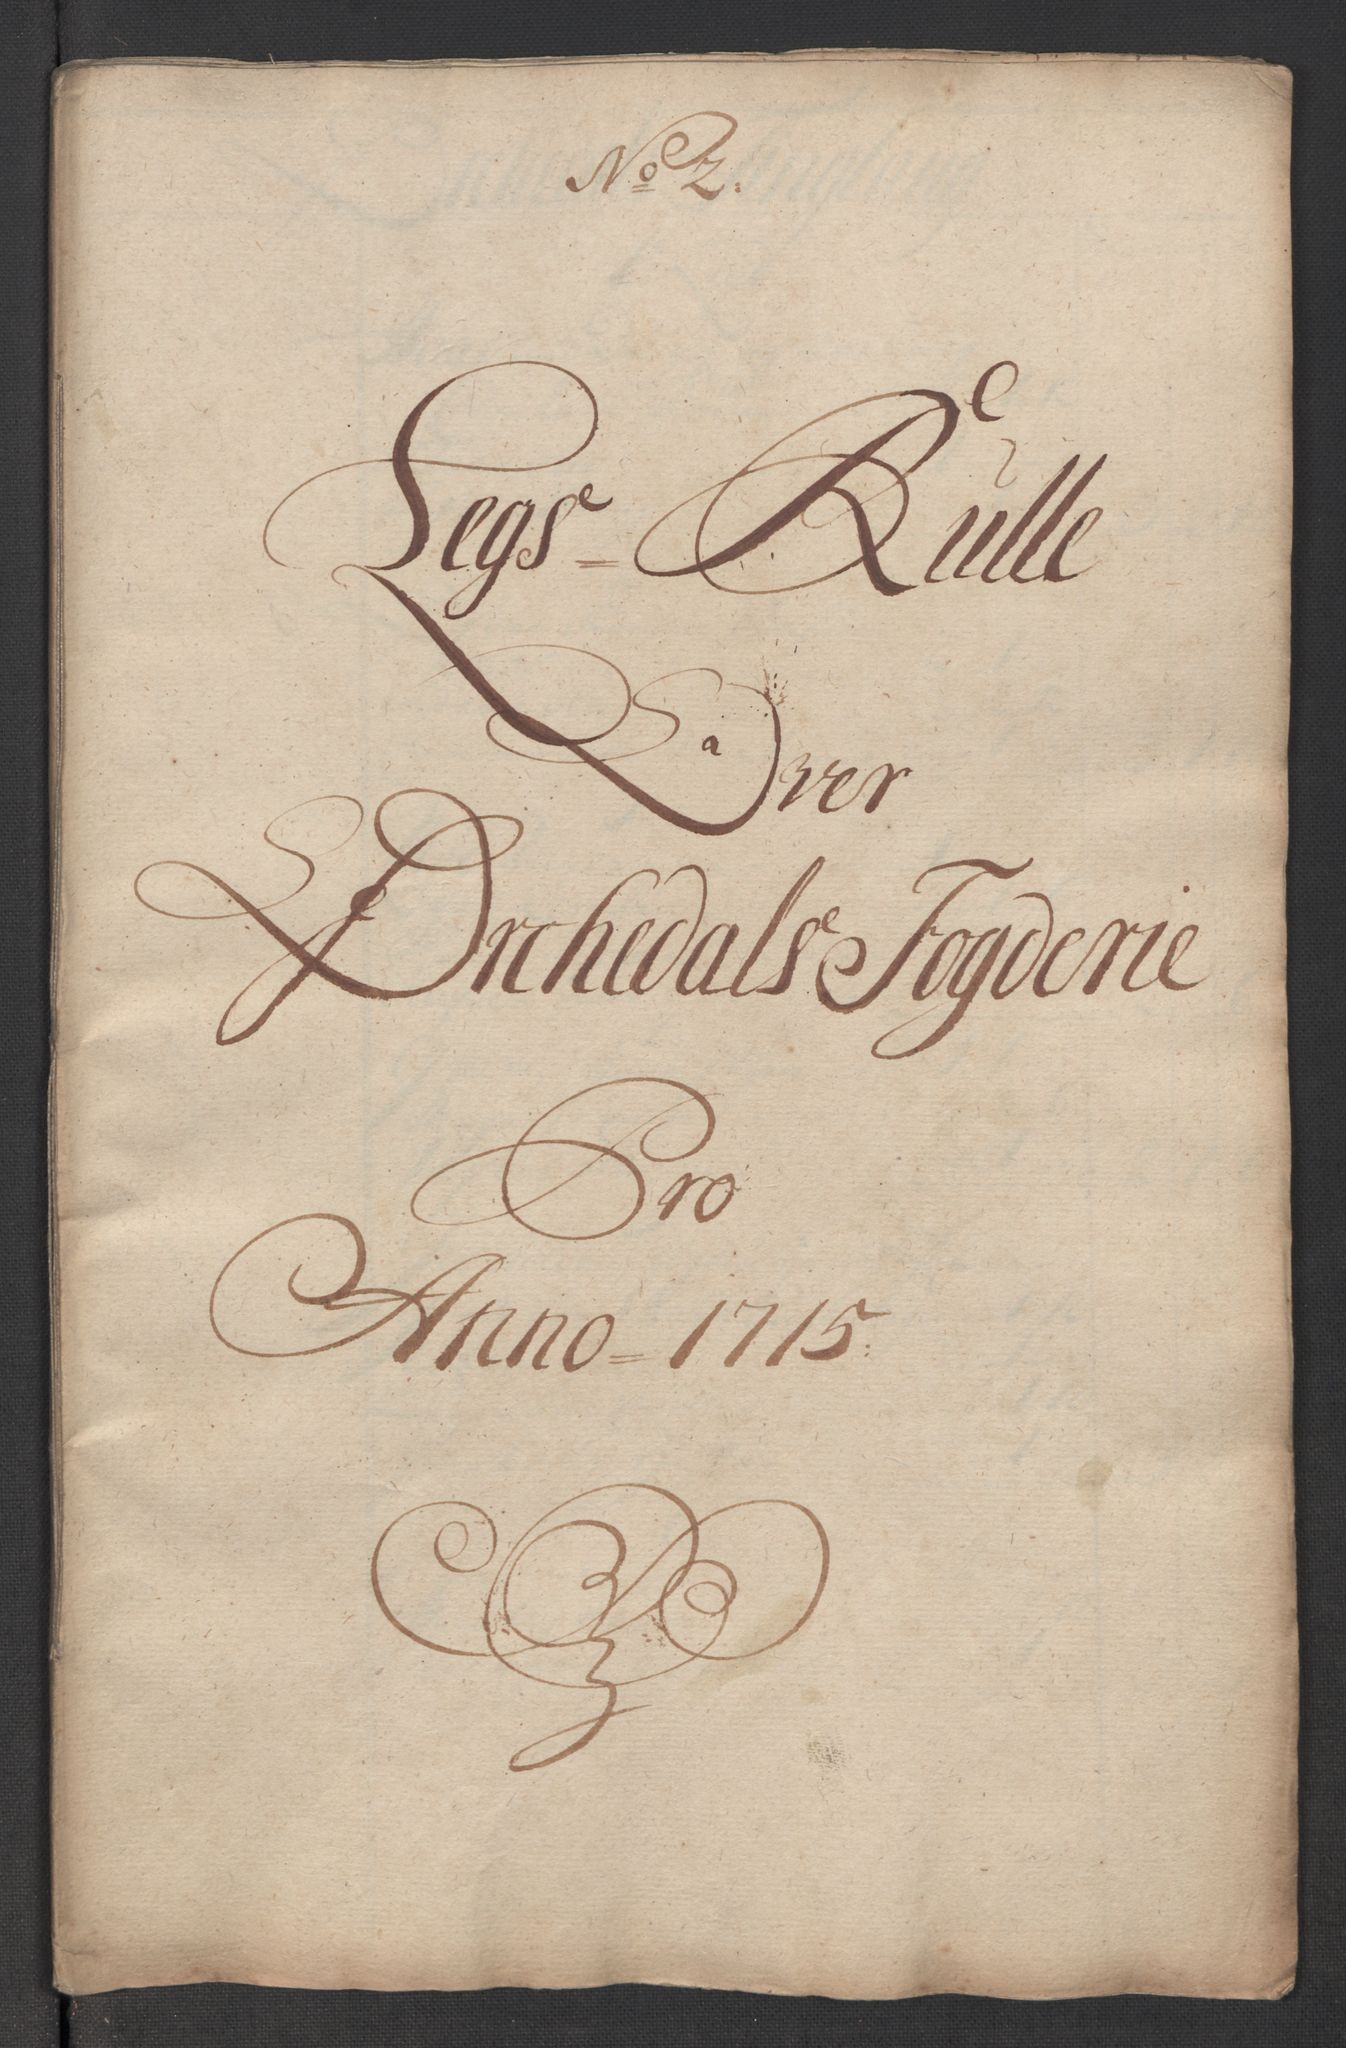 No 2.
Legs = Rulle
Over
Orchedals Fogderie
Pro
Anno = 1715.